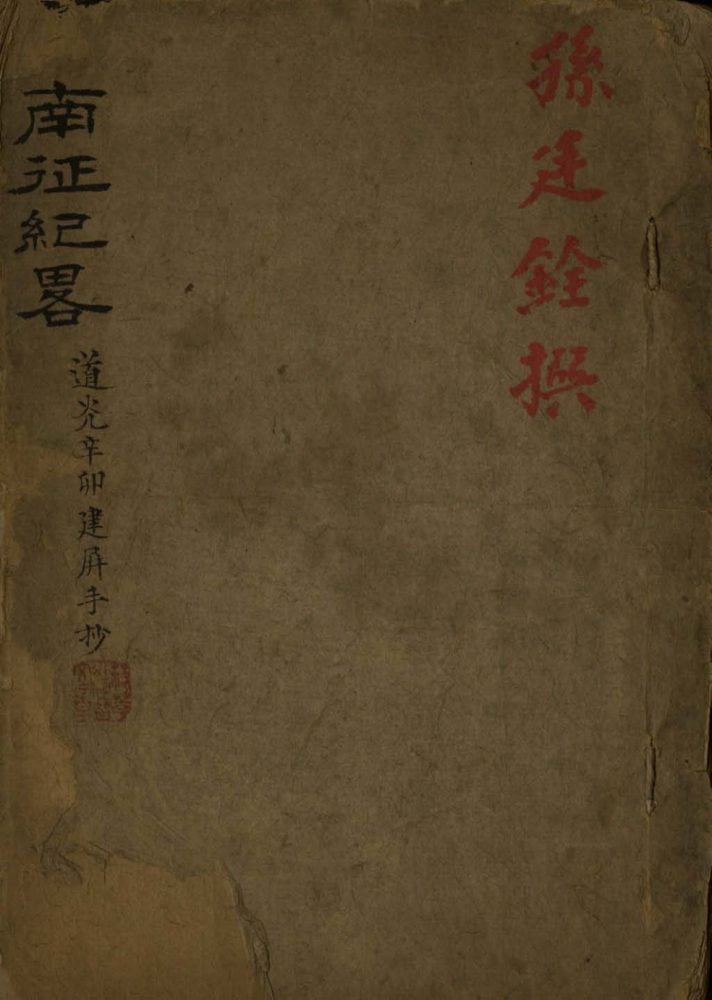 孫廷銓撰
南征紀畧
道光辛卯建屏手抄